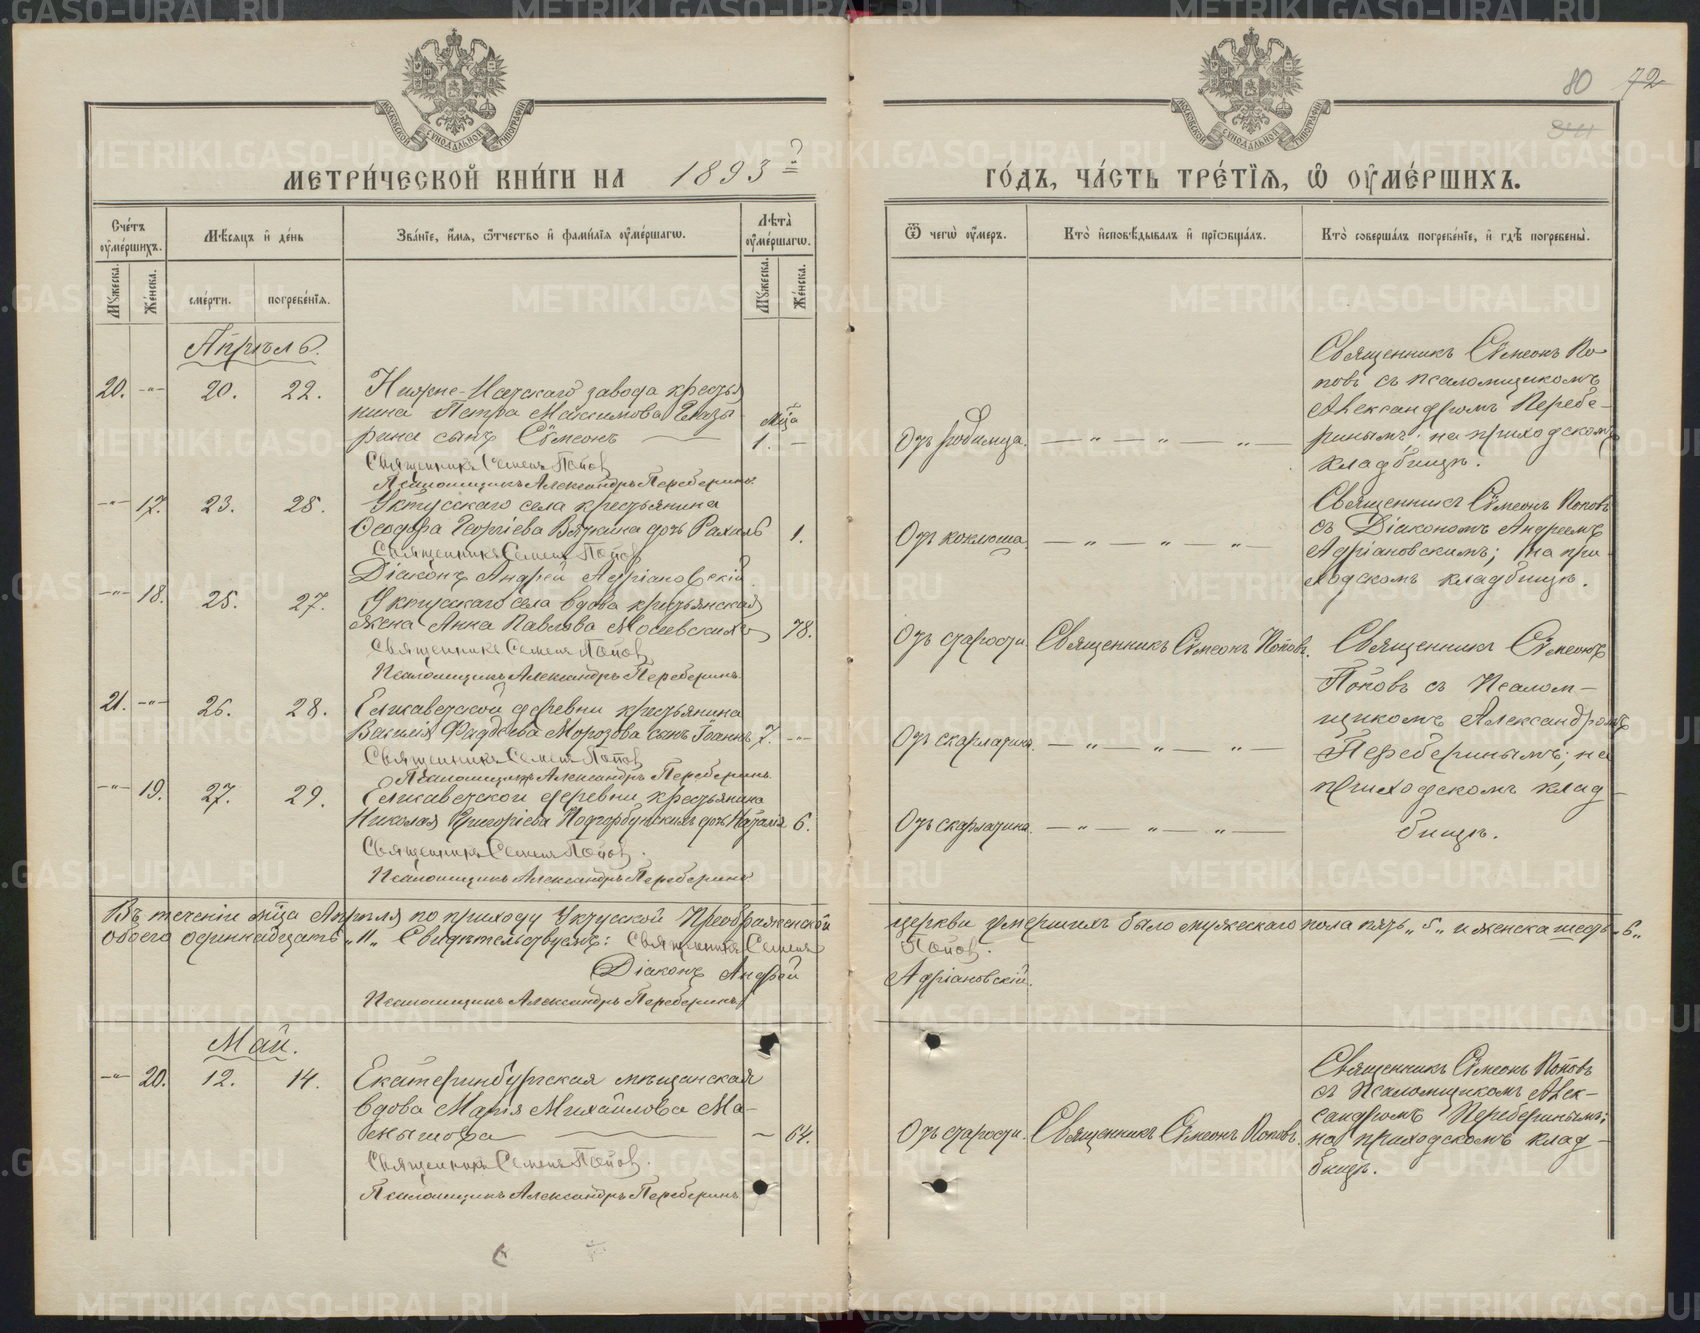 80 72
МЕТРИ́ЧЕСКОЙ КНИ́ГИ НА 1893 ГО́ДЪ, ЧА́СТЬ ТРЕ́ТІЯ, Ѡ ОУМЕ́РШИХЪ.
Сче́тъ оуме́ршихъ.
Мꙋжеска. Же́нска.
Мѣсяцъ и де́нь
сме́рти. погребе́нія.
Зва́ніе, имя, ѻтчество и фами́лія оуме́ршагѡ.
Лѣта̀ оуме́ршагѡ.
Мꙋжеска. Же́нска.
Ѿ чегѡ̀ оу́меръ.
Кто̀ исповѣдывалъ и пріѡбща́лъ.
Кто̀ соверша́лъ погребе́ніе, и гдѣ погребены̀.
Апрѣль.
20. -"- 20. 22. Нижне-Исетскаго завода крестья
нина Петра Максимова
рина сынъ Сѵмеонъ
Мца 1. -
Священникъ Семенъ Поповъ
Псаломщикъ Александръ Переберинъ
Отъ родимца.
Священникъ Сѵмеонъ По
повъ съ псаломщикомъ
Александромъ Перебе-
ринымъ; на приходскомъ
кладбищѣ.
-"- 17. 23. 25. Уктусскаго села крестьянина
Ѳеодора Георгіева Вяткина дочь Рахиль 1.
Священникъ Семенъ Поповъ
Діаконъ Андрей Адріановскій.
Отъ коклюша.
Священникъ Сѵмеонъ Поповъ
съ Діакономъ Андреемъ
Адріановскимъ; на при-
ходскомъ кладбищѣ.
-"- 18. 25. 27. Уктусскаго села вдова крестьянская
жена Анна Павлова 78.
Священникъ Семенъ Поповъ
Псаломщикъ Александръ Переберинъ.
Отъ старости. Священникъ Сѵмеонъ Поповъ.
Священникъ Сѵмеонъ
Поповъ съ Псалом-
щикомъ Александромъ
Переберинымъ; на
приходскомъ клад-
бищѣ.
21. -"- 26. 28. Елизаветской деревни крестьянина
Василія Фаддеева Морозова сынъ Іоаннъ 7. -"-
Священникъ Семенъ Поповъ
Псаломщикъ Александръ Переберинъ.
Отъ скарлатины.
-"- 19. 27. 29. Елизаветской деревни крестьянина
Николая Григоріева Подгорбунскихъ дочь Наталія 6.
Священникъ Семенъ Поповъ.
Псаломщикъ Александръ Переберинъ
Отъ скарлатины.
Въ теченіи мца Апрѣля по приходу Уктусской Преображенской церкви умершихъ было мужескаго пола пять „5" и женска шесть „6"
обоего одиннадцать „11" Свидѣтельствуемъ: Священникъ Семенъ Поповъ.
Діаконъ Андрей Адріановскій.
Псаломщикъ Александръ Переберинъ
Май.
-"- 20. 12. 14. Екатеринбургская мѣщанская
вдова Марія Михайлова Ма-
64.
Священникъ Семенъ Поповъ.
Псаломщикъ Александръ Переберинъ.
Отъ старости. Священникъ Сѵмеонъ Поповъ.
Священникъ Сѵмеонъ Поповъ
съ Псаломщикомъ Алек-
сандромъ Переберинымъ;
на приходскомъ клад-
бищѣ.
METRIKI.GASO-URAL.RU